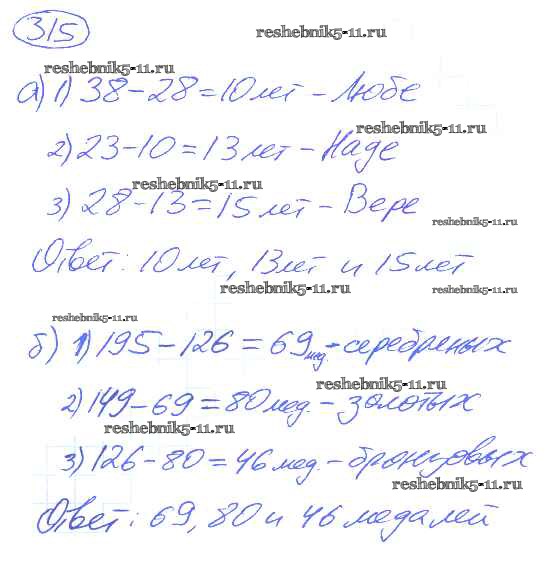 315
reshebnik5-11.ru
reshebnik5-11.ru
а) 1) 38-28=10 лет - Любе
reshebnik5-11.ru
2) 23-10=13 лет - Наде
reshebnik5-11.ru
3) 28-13=15 лет - Вере
reshebnik5-11.ru
Ответ: 10 лет, 13 лет и 15 лет
reshebnik5-11.ru
reshebnik5-11.ru
reshebnik5-11.ru
б) 1) 195-126=69 мед. - серебреных
reshebnik5-11.ru
2) 149-69=80 мед. - золотых
reshebnik5-11.ru
3) 126-80=46 мед. - бронзовых
reshebnik5-11.ru
Ответ: 69, 80 и 46 медалей